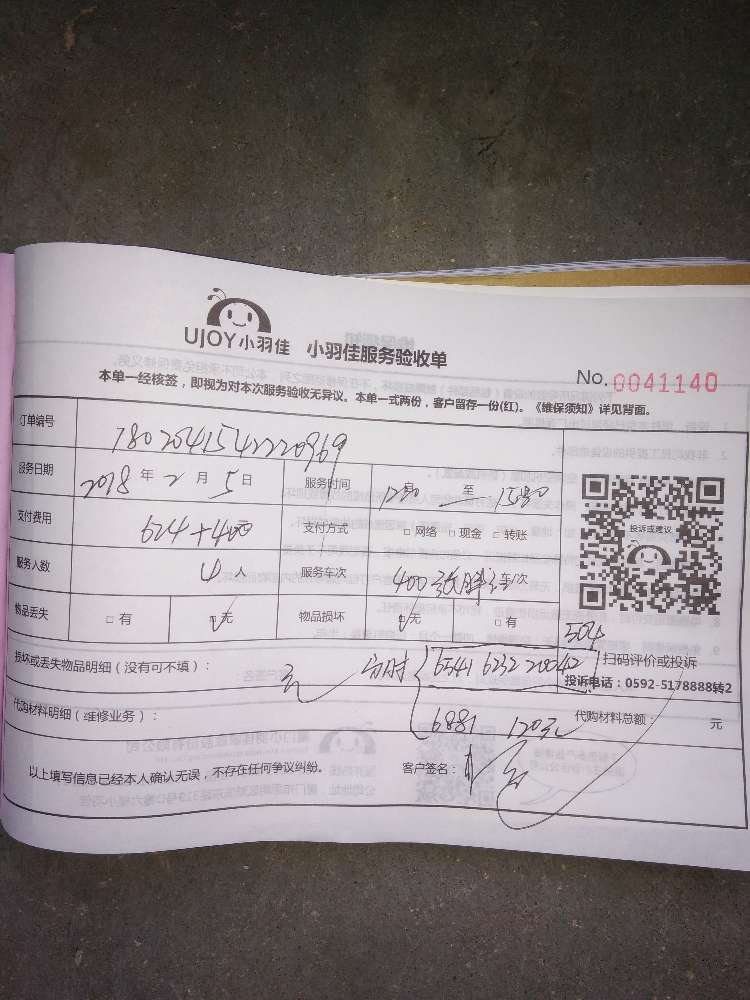 UJOY小羽佳 小羽佳服务验收单
No. 0041140
本单一经核签，即视为对本次服务验收无异议。本单一式两份，客户留存一份(红)。《维保须知》详见背面。
订单编号
服务日期 2018 年 2 月 5 日 服务时间 至
支付费用 624+400 支付方式 □ 网络 □ 现金 □ 转账
投诉或建议
服务人数 4 人 服务车次 400 车/次
物品丢失 □ 有 □ 无 物品损坏 □ 无 □ 有
504
损坏或丢失物品明细（没有可不填）： 无 6541 6232 20042 扫码评价或投诉
投诉电话：0592-5178888转2
代购材料明细（维修业务）： 6881 120元 代购材料总额： 元
以上填写信息已经本人确认无误，不存在任何争议纠纷。 客户签名：